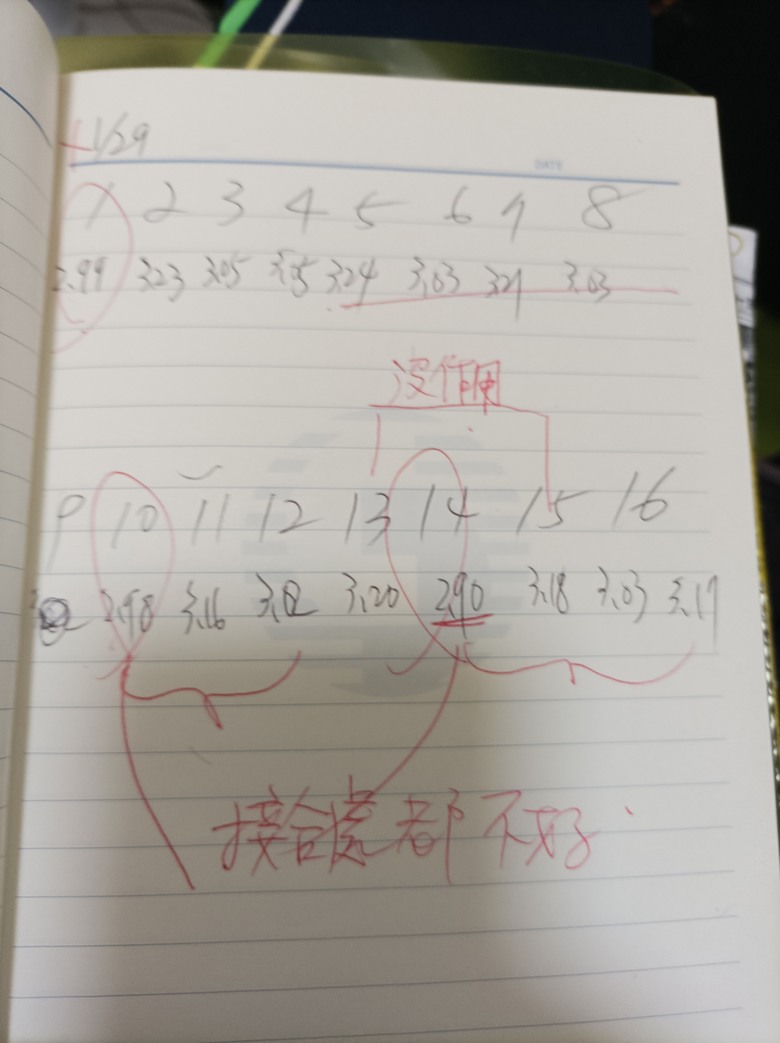 1/29
DATE
1 2 3 4 5 6 7 8
2.99 3.23 3.05 3.24 3.03 3.21 3.03
没作用
9 10 11 12 13 14 15 16
2.98 3.16 3.12 3.20 2.90 3.18 3.03 3.17
接合处都不好